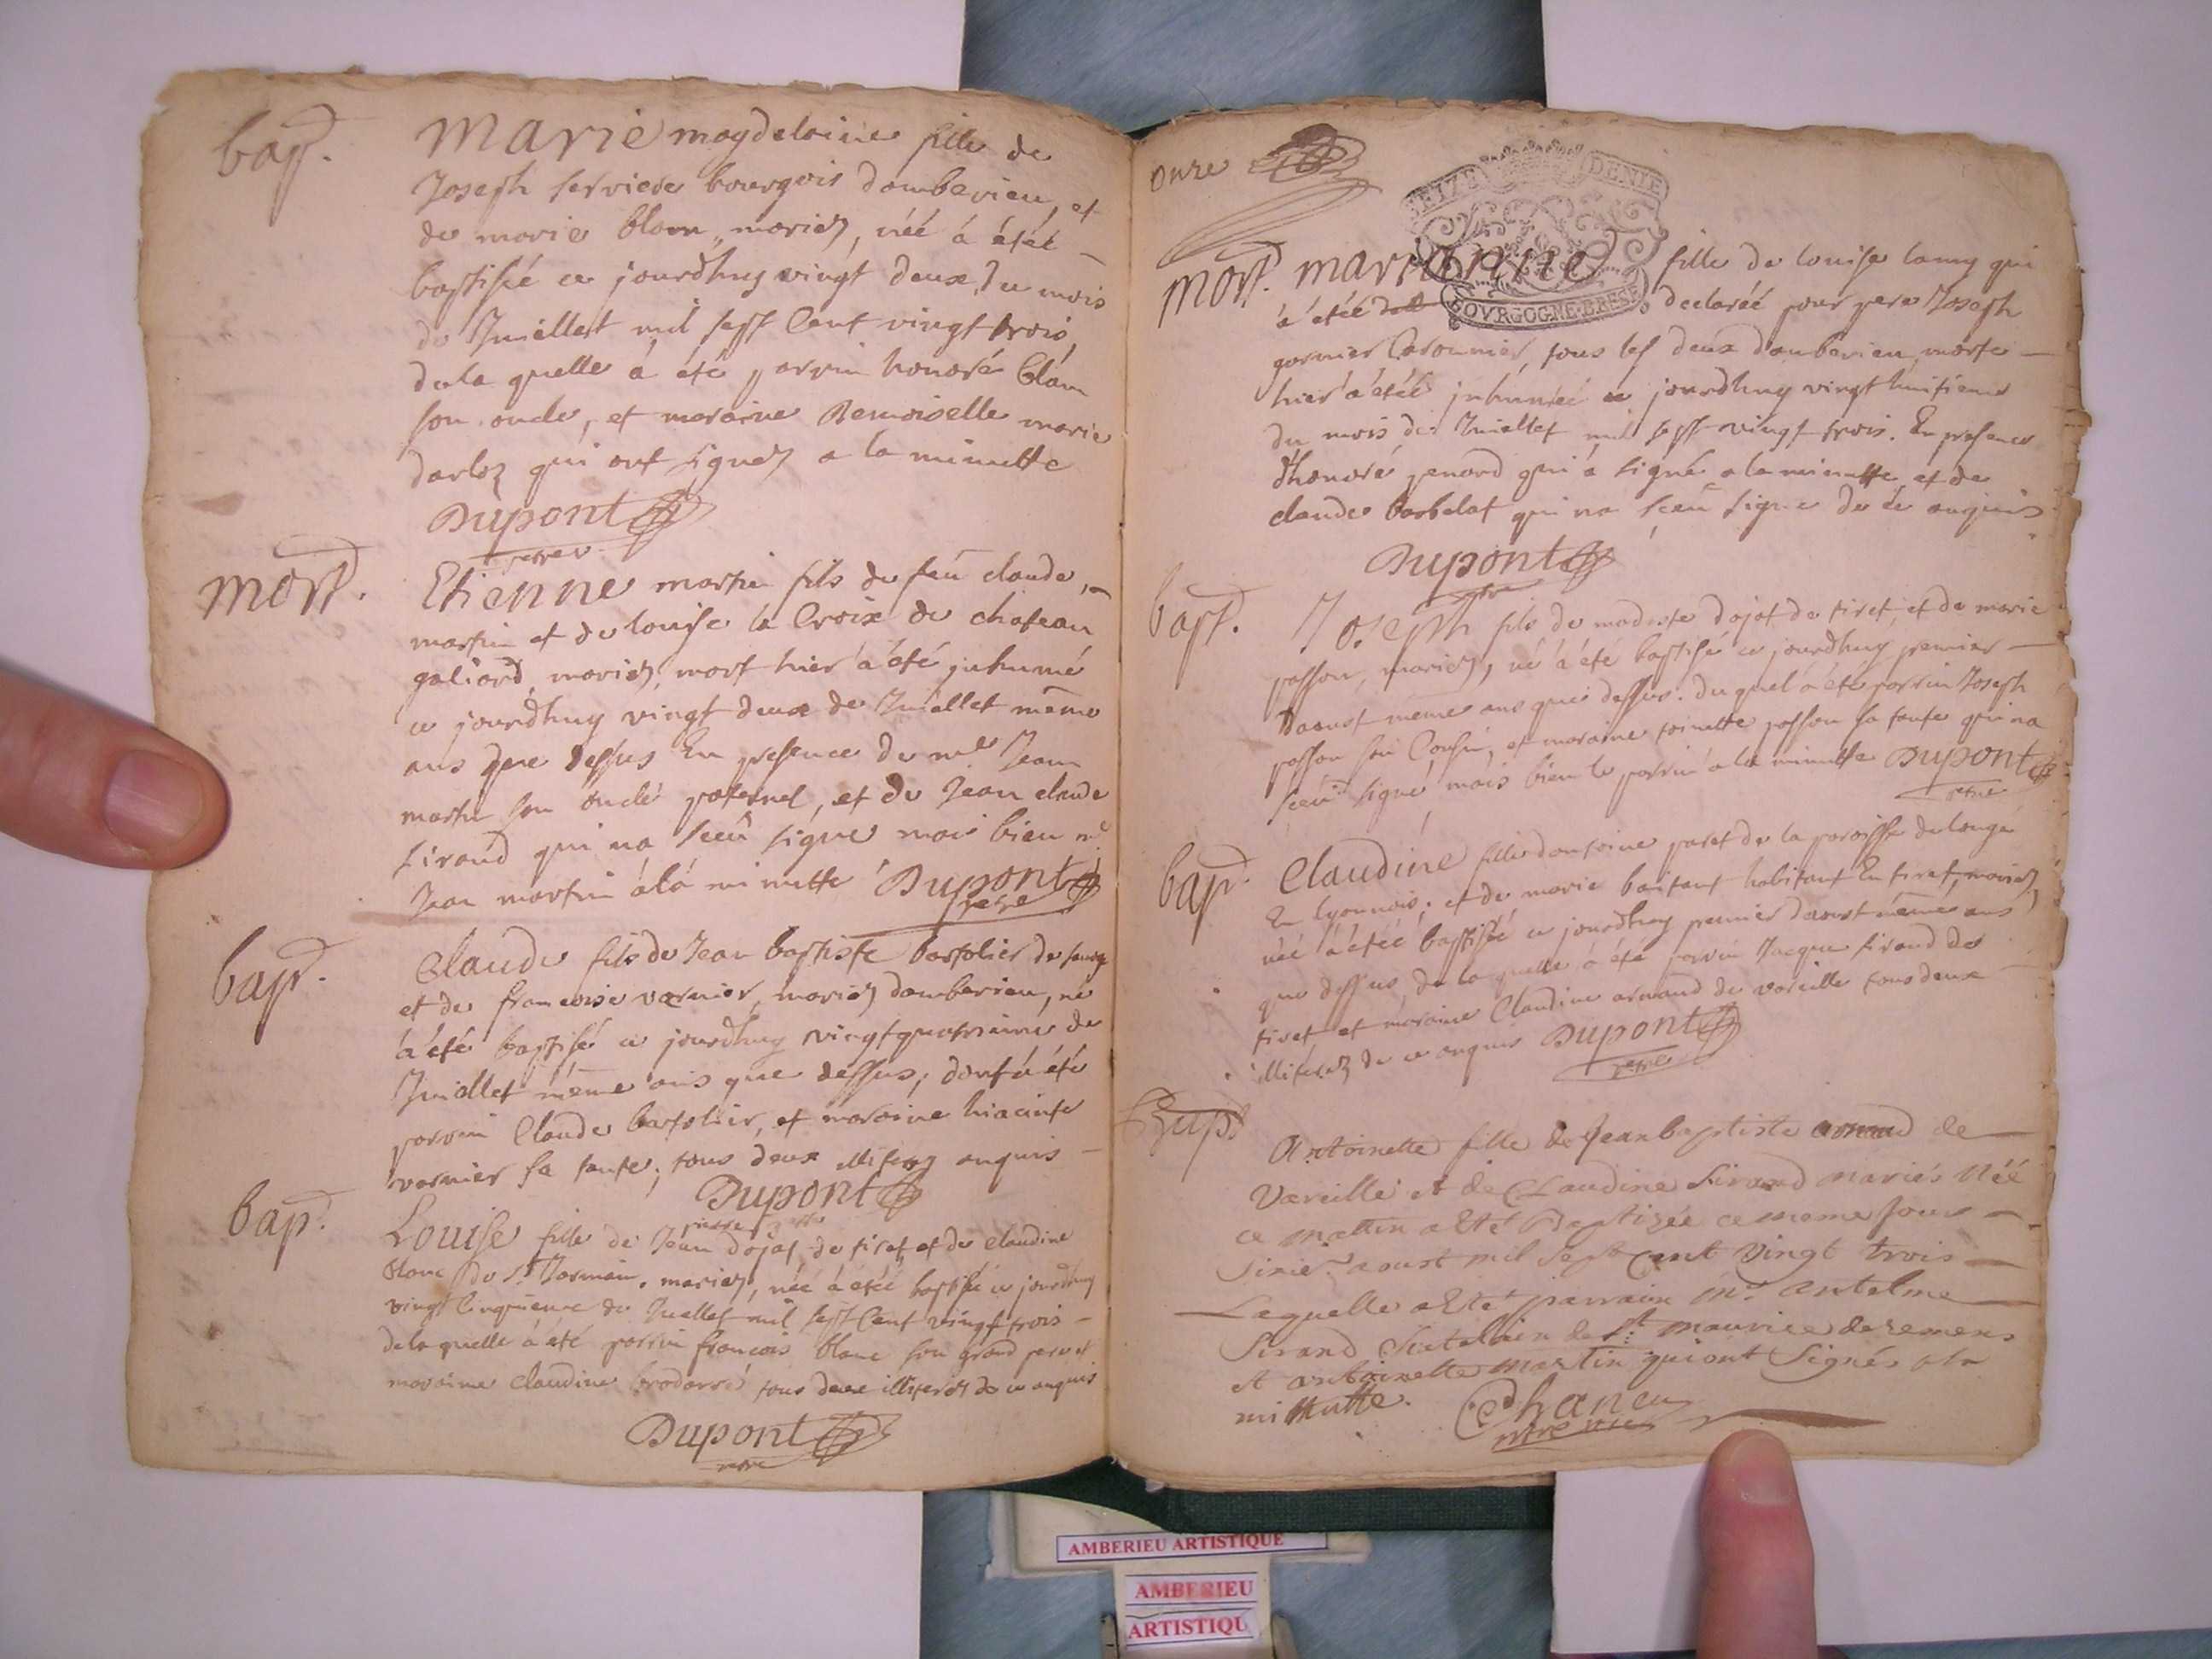 bap.
Marie magdelaine fille de
Joseph serviere bourgois damberieu, et
de marie blanc mariez, néé á étéé
baptiséé ce jourdhuy vingt deux du mois
de Juiellet mil sept Cent vingt trois,
de la quelle á été parrin honoré blanc
son oncle, et maraine Demoiselle marie
darloz qui ont signez a la minutte
Dupont
mort.
Etienne martin fils de feû claude
martin et de louise la Croix de chateau
galiard, mariez, mort hier á été inhumé
ce jourdhuy vingt deux de Juiellet même
ans que dessus En presence de me Jean
martin son oncle paternel, et de Jean claude
sirand qui na sceû signer mais bien me
Jean martin á lá minutte Dupont
bap.
Claude fils de Jean baptiste bartolier de
et de francoise varnier, mariez damberieu, né
á été baptisé ce jourdhuy vingtquatrieme de
Juiellet même ans que dessus, dont á été
parrin Claude bartolier, et maraine hiacinte
varnier sa tante, tous deux illiterez enquis
Dupont
bap.
pierre
Louise fille de Jean dojat de tiret et de claudine
blanc de St Jarmain, mariez, néé á étéé baptiséé ce jourdhuy
vingt Cinquieme de Juiellet mil sept Cent vingt trois
de la quelle á été parrin francois blanc son grand pere et
maraine claudine tous deux illiterez de ce enquis
Dupont
onze
SEIZE DENIE
BOVRGOGNE·BRESE
mort. marianne fille de louise lamy qui
á étéé declaréé pour pere Joseph
garnier tous les deux damberieu, morte
hier á étéé inhuméé ce jourdhuy vingt huitieme
du mois de Juiellet mil sept vingt trois. En presence
dhonoré penard qui á signé a la minutte et de
claude barbelat qui na sceû signer de ce enquis
Dupont
bapt.
Joseph fils de modeste dojat de tiret, et de marie
passon, mariez, né á été baptisé ce jourdhuy premier
Daoust meme ans que dessus. duquel á été parrin Joseph
passon son Cousin, et maraine toinette passon sa tante qui na
sceû signé mais bien le parrin a la minutte Dupont
bap.
Claudine fille dantoine paret de la paroisse de longe
En lyonnois, et de marie habitant En tiret, mariez,
néé á étéé baptiséé ce jourdhuy premier daoust même ans
que dessus, de la quelle á été parrin Jacque sirand de
tiret et maraine Claudine arnaud de vareille tous deux
illiterez de ce enquis Dupont
Bap.
Antoinette fille de Jean baptiste arnaud de
Vareille et de Claudine Sirand mariés Néé
ce mattin a Eté Baptizée ce meme Jour
Sixie. aoust mil Sept Cent Vingt trois
Laquelle a Eté parrain Mr. antelme
Sirand Chatelain de St. maurice de remens
et antoinette martin qui ont Signés a la
minutte. Chaneu
AMBERIEU ARTISTIQUE
AMBERIEU
ARTISTIQU